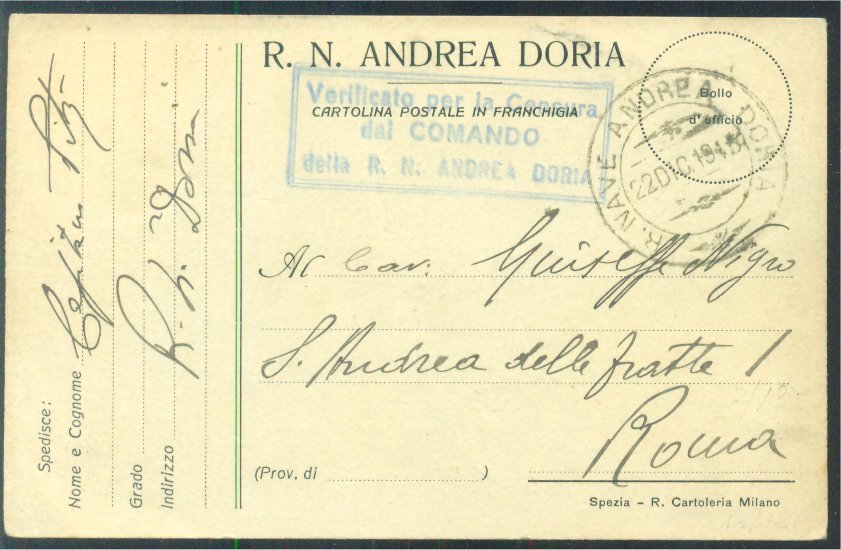 R. N. ANDREA DORIA
CARTOLINA POSTALE IN FRANCHIGIA
Verificato per la Censura
dal COMANDO
della R. N. ANDREA DORIA
Bollo
d'ufficio
R. NAVE ANDREA DORIA
22 DIC. 191
Al Cav. Giuseppe Nigro
S. Andrea delle fratte 1
Roma
(Prov. di )
Spezia - R. Cartoleria Milano
Spedisce:
Nome e Cognome
Grado
Indirizzo R. N. Doria